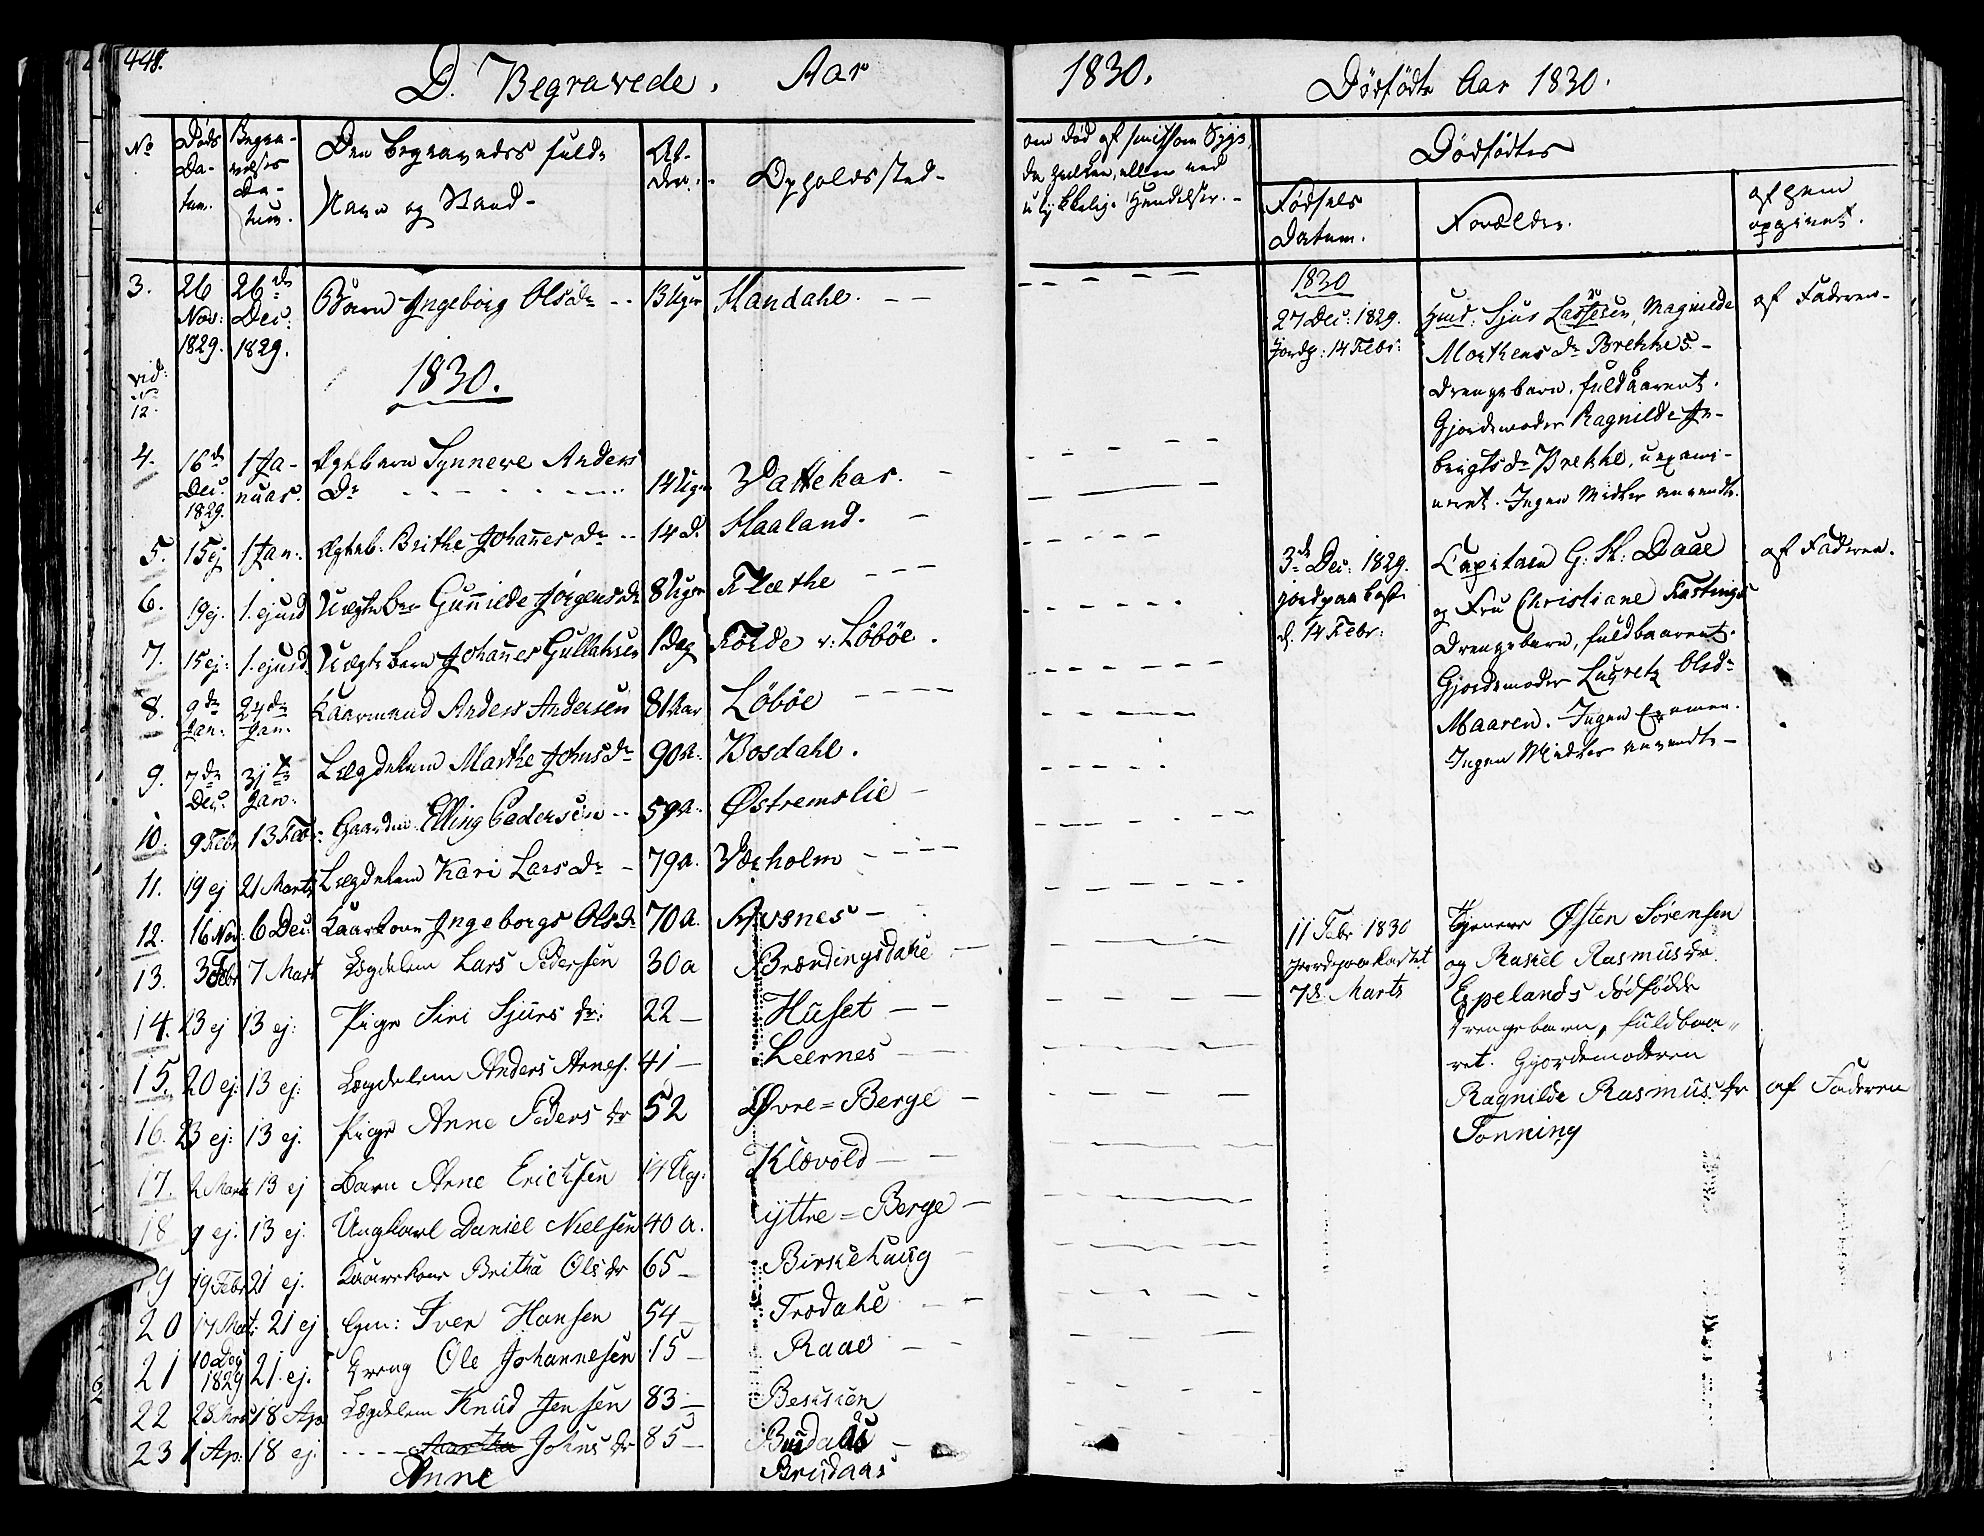 448.
D. Begravede. Aar 1830.
Dödfödte Aar 1830.
No
Döds Datum.
Begravelses Datum.
Den begravedes fulde Navn og Stand -
Alder.
Opholdssted -
om död af smitsom Syge,
da hvilken, eller ved
ulykkelige Hændelser. -
Dödfödtes
Födsels Datum.
Forældre.
af hvem opgivet.
3. 26 Nov: 1829. 26de Dec: 1829. Barn Ingeborg Olsdr - - 13 Uger Mandahl. - -
vid: No 12.
1830.
4. 16de Dec. 1829. 1 Januar. Ægtebarn Synneve Anders
Dr - - - - 14 Uger Vattekar. -
5. 15 ej 1 Jan: Ægteb: Brithe Johannesdr - - 14 d. Haaland. -
6. 19 ej. 1. ejusd Uægte br Gunnilde Jörgensdr 8 Uger Flæthe - - -
7. 15 ej: 1. ejusd. Uægte barn Johannes Gullaksen 1 Dag Folde v: Löböe.
8. 9de Jan: 24de Jan. Kaarmand Anders Andersen 81 Aar Löböe - - - -
9. 7de Dec. 31te Jan. Lægdelem Marthe Johnsdr 90 a. Bosdahl.
10. 9 Febr 13 Feb: Gaardm. Elling Pedersen - - 59 a. Østremslie -
11. 19 ej 21 Marts Lægdelem Kari Larsdr - 79 a. Værholm - - - -
12. 16 Nov: 6 Dec: Kaarkone Ingeborge Olsdr 70 a. Avsnes - -
13. 3 Febr 7 Mart Lægdelem Lars Pedersen 30 a Brændingsdahe -
14. 23 ej 13 ej: Pige Siri Sjurs dr: 22 - Huset - -
15. 20 ej: 13 ej: Lægdelem Anders Arnes. 41 - Leernes - -
16. 23 ej: 13 ej. Pige Anne Peders dr 52 Øvre = Berge -
17. 2 Marts 13 ej Barn Arne Ericksen 14 Ug: Klævold - -
18 9 ej. 13 ej. Ungkarl Daniel Nielsen 40 a. ÿttre = Berge -
19 19 Febr 21 ej. Kaarekone Britha Ols dr 65 - Birkehaug -
20 17 Mart: 21 ej Gm: Iver Hansen 54 - Trodahl - -
21 10 Dec 1829 21 ej. Dreng Ole Johannesen 15 - Raae - -
22 28 Mrs 18 Ap Lægdelem Knud Jensen 83 - Beskken
23 1 Ap: 18 ej. - - - Martha Johns dr 85 -
Anne
Brudaas
1830
27 Dec: 1829.
Jordp: 14 Febr:
Husm: Sjur Lassesen, Magnilde
Mortensdr Brekkes -
Drengebarn, fuldbaarent.
Gjordemoder Ragnilde In-
brigtsdr Brekke, uexami-
neret. Ingen Midler anvendte.
af Faderen -
3de Dec: 1829.
jordpaakast
d. 14 Febr:
Capitain G: Daae
og Fru Christiane Fastings
Drengebarn, fuldbaarent.
Gjordemoder Olsdr
Maaren. Ingen Examen.
Ingen Midler anvendte -
af Faderen.
11 Febr 1830
jordpaakastet
7de Marts
Tjenere Østen Sörensen
og Raskel Rasmusdr.
Espelands dödfödde
Drengebarn, fuldbaa-
ret. Gjordemoderen
Ragnilde Rasmus dr
Tonning
af Faderen